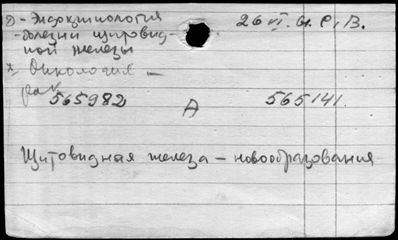 - Эндокринология
- болезни щитовид-
ной железы
26 VI. 61. Р. В.
* Онкология -
рак
565982 А 565141.
Щитовидная железа - новообразования